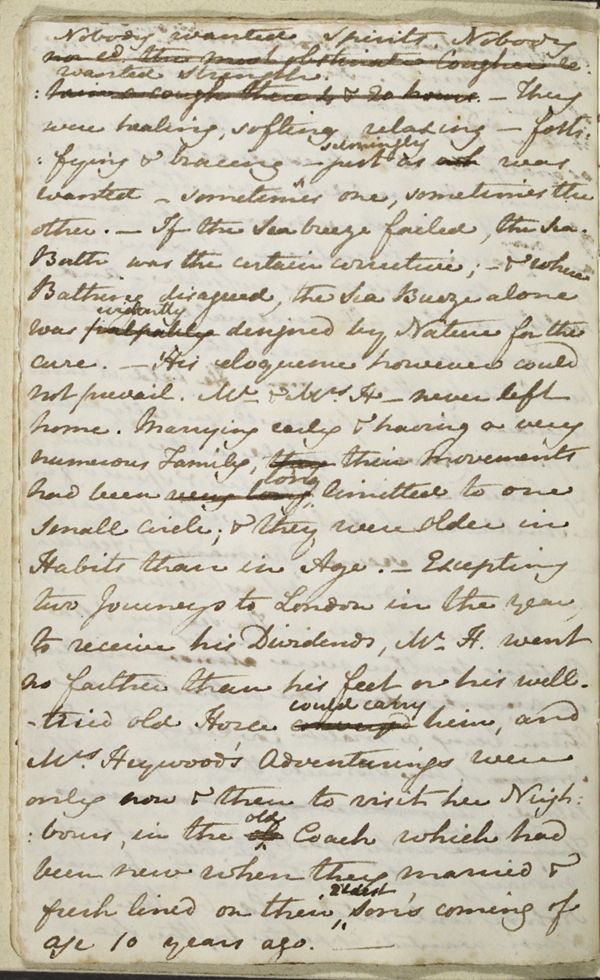 Nobody wanted Spirits, Nobody
wanted Strength.
They
were healing, softing, relaxing — forti-
:fying & bracing — seemingly just as was
wanted — sometimes one, sometimes the
other. — If the Sea breeze failed, the Sea-
Bath was the certain corrective; — & where
Bathing disagreed, the Sea Breeze alone
was evidently designed by Nature for the
cure. — His eloquence however could
not prevail. Mr. & Mrs H — never left
home. Marrying early & having a very
numerous Family, they their Movements
had been very long long limitted to one
small circle; & they were older in
Habits than in Age. — Excepting
two Journeys to London in the year,
to receive his Dividends, Mr. H. went
no farther than his feet or his well-
-tried old Horse could carry him, and
Mrs. Heywood's Adventurings were
only now & then to visit her Neigh-
:bours, in the old Coach which had
been new when they married &
fresh lined on their Eldest Son's coming of
age 10 years ago. —